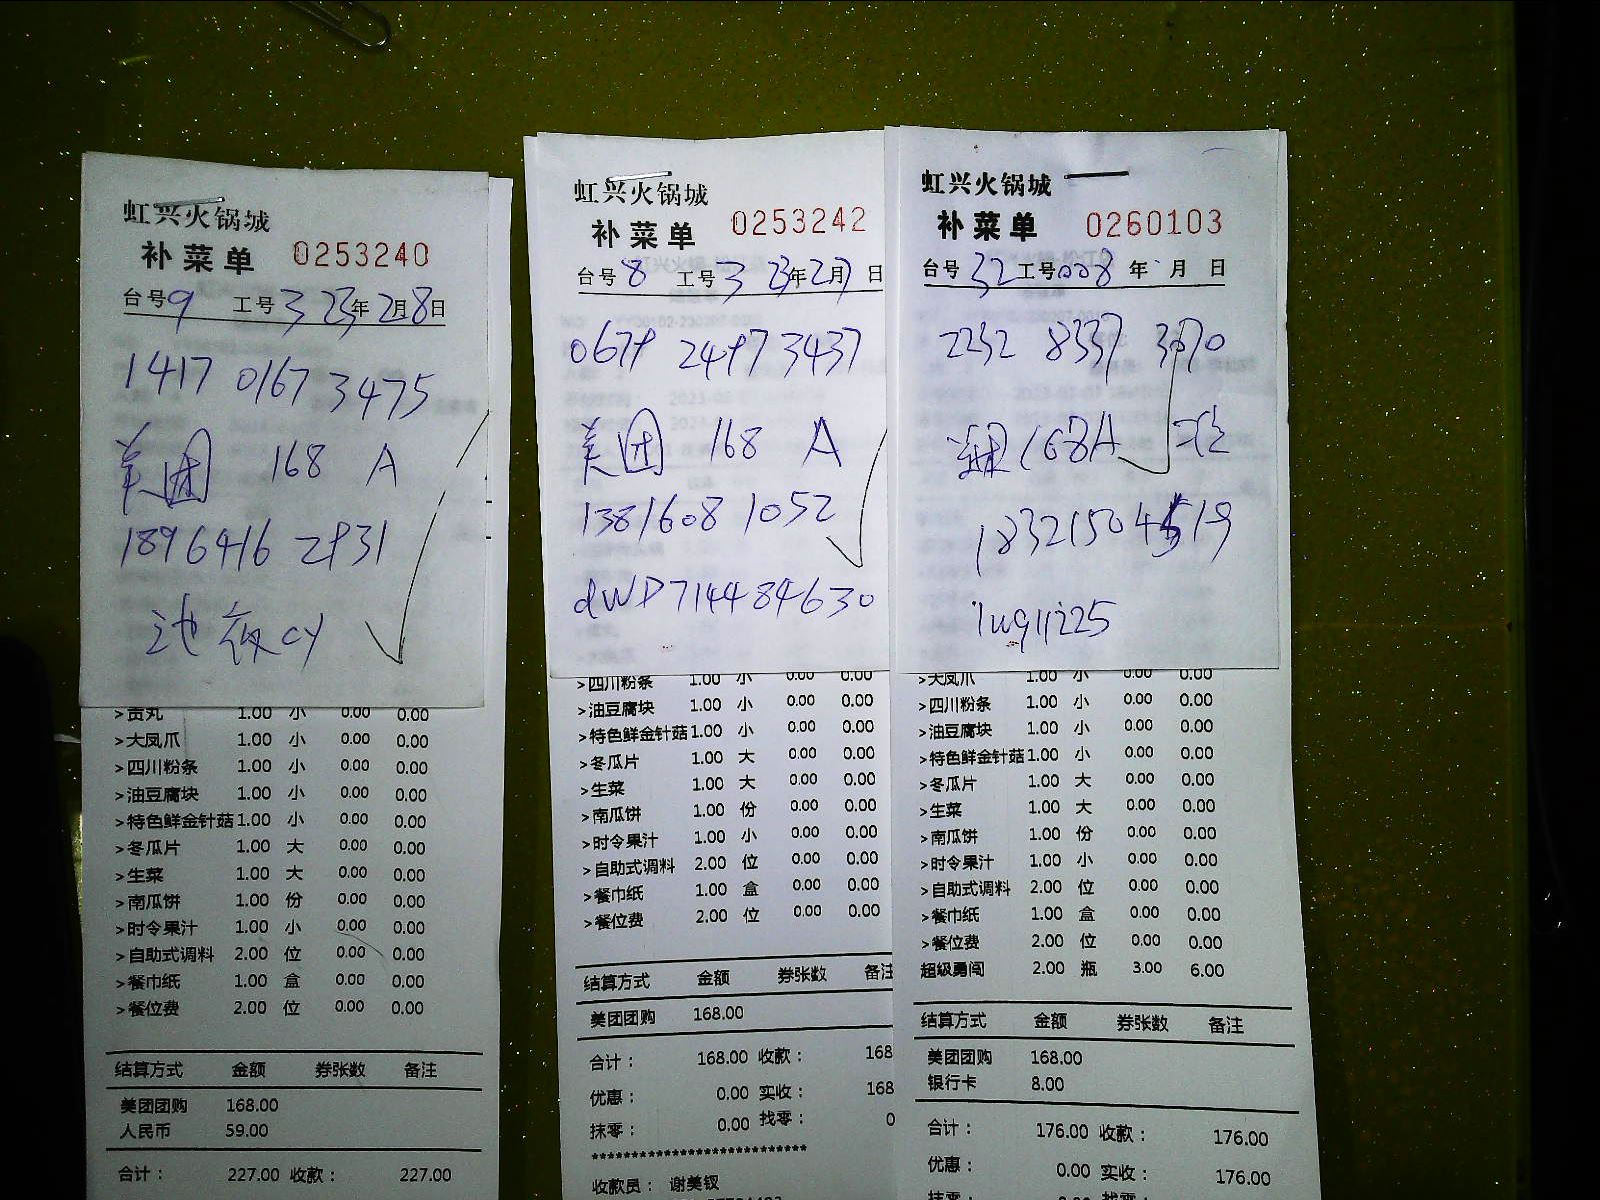 虹兴火锅城
补菜单 0253240
台号9 工号3 23年2月8日
1417 0167 3475
美团 168 A
1896416 2931
池 夜cy
>贡丸 1.00 小 0.00 0.00
>大凤爪 1.00 小 0.00 0.00
>四川粉条 1.00 小 0.00 0.00
>油豆腐块 1.00 小 0.00 0.00
>特色鲜金针菇1.00 小 0.00 0.00
>冬瓜片 1.00 大 0.00 0.00
>生菜 1.00 大 0.00 0.00
>南瓜饼 1.00 份 0.00 0.00
>时令果汁 1.00 小 0.00 0.00
>自助式调料 2.00 位 0.00 0.00
>餐巾纸 1.00 盒 0.00 0.00
>餐位费 2.00 位 0.00 0.00
结算方式 金额 券张数 备注
美团团购 168.00
人民币 59.00
合计： 227.00 收款： 227.00
虹兴火锅城
补菜单 0253242
台号8 工号3 23年2月7日
0679 2497 3437
美团 168 A
1381608 1052
dWD714484630
>四川粉条 1.00 小 0.00 0.00
>油豆腐块 1.00 小 0.00 0.00
>特色鲜金针菇1.00 小 0.00 0.00
>冬瓜片 1.00 大 0.00 0.00
>生菜 1.00 大 0.00 0.00
>南瓜饼 1.00 份 0.00 0.00
>时令果汁 1.00 小 0.00 0.00
>自助式调料 2.00 位 0.00 0.00
>餐巾纸 1.00 盒 0.00 0.00
>餐位费 2.00 位 0.00 0.00
结算方式 金额 券张数 备注
美团团购 168.00
合计： 168.00 收款： 168
优惠： 0.00 实收： 168
抹零： 0.00 找零： 0
****************************
收款员： 谢美钗
虹兴火锅城
补菜单 0260103
台号32 工号008 年 月 日
2232 8337 3070
美团168A
18321504519
lwq11225
>大凤爪 1.00 小 0.00 0.00
>四川粉条 1.00 小 0.00 0.00
>油豆腐块 1.00 小 0.00 0.00
>特色鲜金针菇1.00 小 0.00 0.00
>冬瓜片 1.00 大 0.00 0.00
>生菜 1.00 大 0.00 0.00
>南瓜饼 1.00 份 0.00 0.00
>时令果汁 1.00 小 0.00 0.00
>自助式调料 2.00 位 0.00 0.00
>餐巾纸 1.00 盒 0.00 0.00
>餐位费 2.00 位 0.00 0.00
超级勇闯 2.00 瓶 3.00 6.00
结算方式 金额 券张数 备注
美团团购 168.00
银行卡 8.00
合计： 176.00 收款： 176.00
优惠： 0.00 实收： 176.00